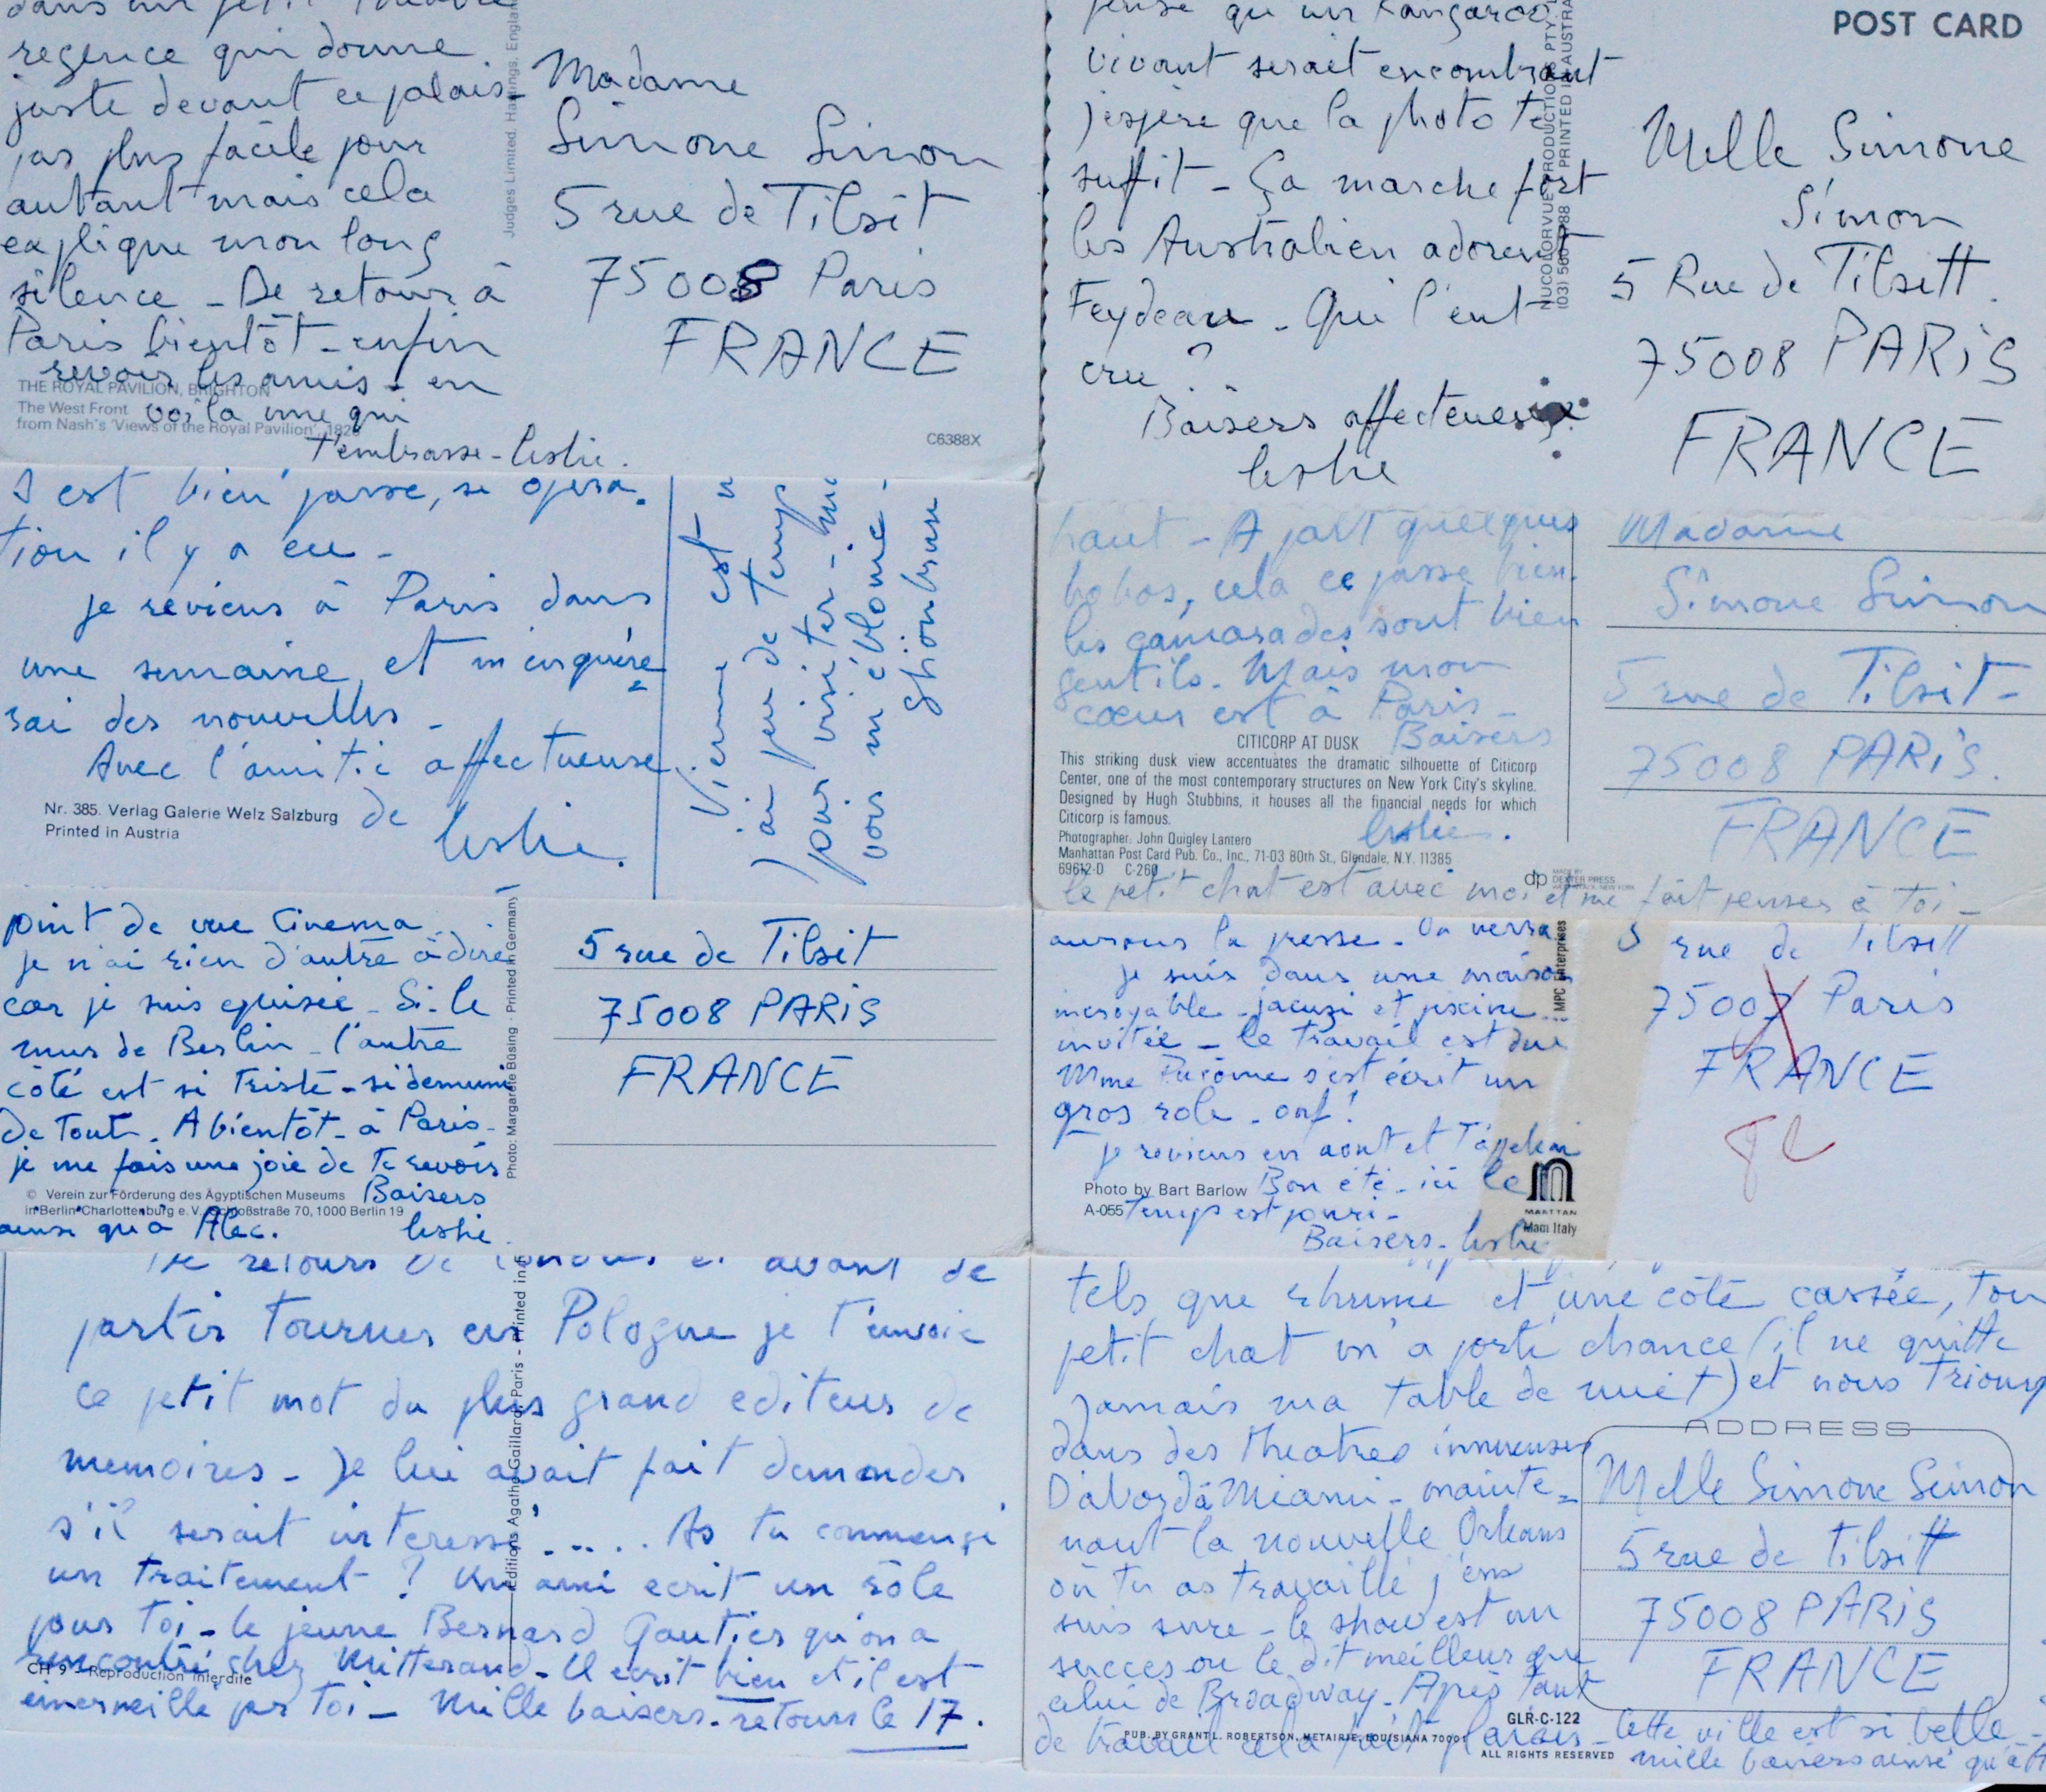 regence qui donne
juste devant ce palais -
pas plus facile pour
autant mais cela
explique mon long
silence - De retour à
Paris bientôt - enfin
revoir les amis - en
voila une qui
t'embrasse - leslie.
THE ROYAL PAVILION, BRIGHTON
The West Front
from Nash's 'Views of the Royal Pavilion', 1826
C6388X
Judges Limited, Hastings, England
Madame
Simone Simon
5 rue de Tilsit
75008 Paris
FRANCE
pense qu'un Kangaroo
vivant serait encombrant
j'espère que la photo te
suffit - ça marche fort
les Australien adorent
Feydeau - Qui l'eut
cru ?
Baisers affectueux
leslie
POST CARD
Melle Simone
Simon
5 Rue de Tilsitt.
75008 PARIS
FRANCE
s'est bien passé, si opéra.
tion il y a eu -
je reviens à Paris dans
une semaine, et m'enquére=
rai des nouvelles -
Avec l'amitié affectueuse
de leslie.
Nr. 385. Verlag Galerie Welz Salzburg
Printed in Austria
Vienne est
j'ai peu de temps
pour visiter -
voir m'éblouie -
haut - A part quelques
bobos, cela ce passe bien.
les camarades sont bien
gentils. Mais mon
cœur est à Paris -
Baisers
CITICORP AT DUSK
This striking dusk view accentuates the dramatic silhouette of Citicorp
Center, one of the most contemporary structures on New York City's skyline.
Designed by Hugh Stubbins, it houses all the financial needs for which
Citicorp is famous.
leslie.
Photographer: John Quigley Lantero
Manhattan Post Card Pub. Co., Inc., 71-03 80th St., Glendale, N.Y. 11385
69612-D C-260
dp MADE BY
DEXTER PRESS
le petit chat est avec moi et me fait penser à toi -
Madame
Simone Simon
5 rue de Tilsit -
75008 PARIS.
FRANCE
point de vue Cinema
je n'ai rien d'autre à dire
car je suis épuisée - Si. le
mur de Berlin - l'autre
côté est si triste - si demuni
de tout. A bientôt - à Paris -
je me fais une joie de te revoir
Baisers
© Verein zur Förderung des Ägyptischen Museums
in Berlin-Charlottenburg e.V., Schloßstraße 70, 1000 Berlin 19
ainsi qu'à Alec. leslie.
Photo: Margarete Büsing · Printed in Germany
5 rue de Tilsit
75008 PARIS
FRANCE
aurons la presse - On verra
je suis dans une maison
incroyable - jacuzi et piscine...
invitée - le travail est dur
Mme s'est écrit un
gros role - ouf !
je reviens en aout et t'appelerai
Bon été - ici le
temps est pourri -
Baisers - leslie
Photo by Bart Barlow
A-055
MPC Enterprises
MANTTAN
Made in Italy
5 rue de Tilsitt
75007 Paris
FRANCE
De retour de Londres et avant de
partir tourner en Pologne je t'envoie
ce petit mot du plus grand editeur de
memoires - Je lui avait fait demander
s'il serait interessé ..... As tu commencé
un traitement ? Un ami ecrit un rôle
pour toi - le jeune Bernard Gautier qu'on a
rencontré chez Mitterand - Il ecrit bien et il est
émerveillé par toi - Mille baisers - retour le 17.
CH 9 - Reproduction interdite
Editions Agathe Gaillard Paris - Printed in
tels que rhume et une côte cassée, ton
petit chat m'a porté chance (il ne quitte
jamais ma table de nuit) et nous triomp
dans des theatres immenses
D'abord à Miami - mainte=
nant la nouvelle Orleans
où tu as travaillé j'en
suis sure - le show est un
succes on le dit meilleur que
celui de Broadway - Après tant
de travail cela fait plaisir - Cette ville est si belle -
mille baisers ainsi qu'à
GLR-C-122
PUB. BY GRANT L. ROBERTSON, METAIRIE, LOUISIANA 70001
ALL RIGHTS RESERVED
ADDRESS
Melle Simone Simon
5 rue de Tilsitt
75008 PARIS
FRANCE